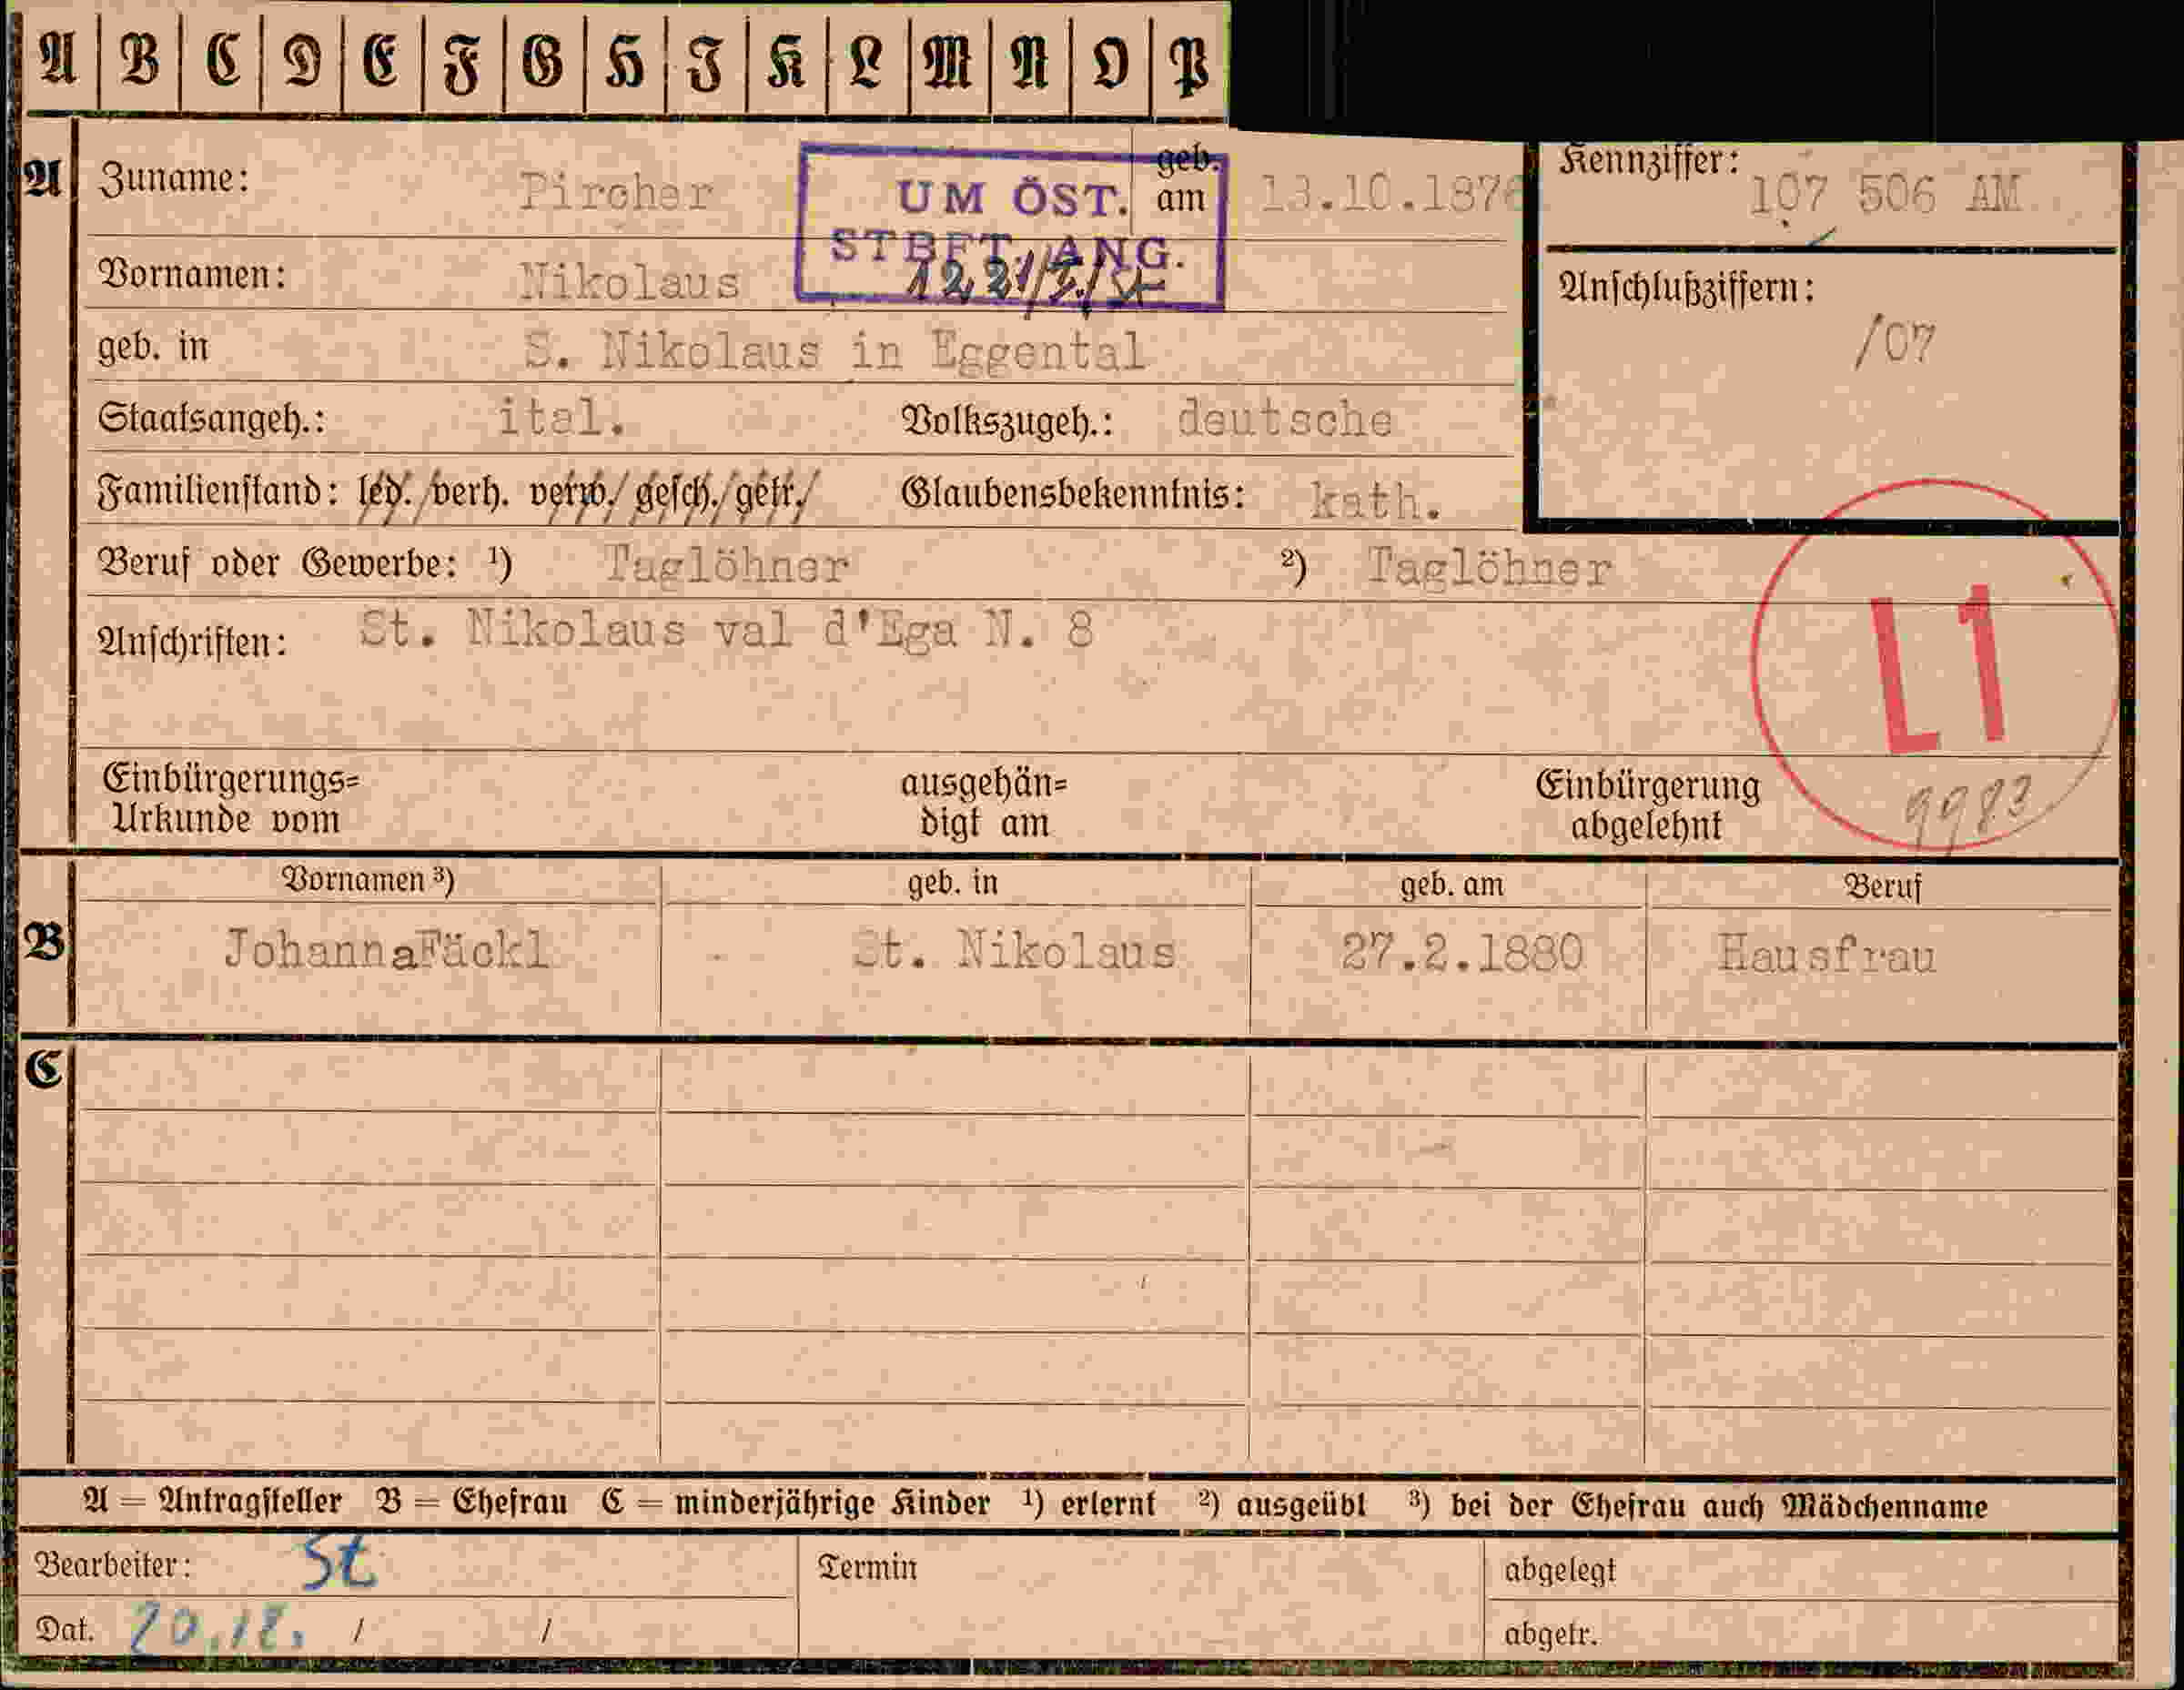 A B C D E F G H I K L M N O P
A Zuname: Pircher geb. am 13.10.1876 Kennziffer: 107 506 AM
UM ÖST.
STBFT. ANG.
Vornamen: Nikolaus
Anschlußziffern: /07
geb. in S. Nikolaus in Eggental
Staatsangeh.: ital. Volkszugeh.: deutsche
Familienstand: led./verh. verw./gesch./getr./ Glaubensbekenntnis: kath.
Beruf oder Gewerbe: ¹) Taglöhner ²) Taglöhner
Anschriften: St. Nikolaus val d'Ega N. 8
L1
Einbürgerungs=
Urkunde vom
ausgehän=
digt am
Einbürgerung
abgelehnt
9983
Vornamen ³) geb. in geb. am Beruf
B JohannaFäckl St. Nikolaus 27.2.1880 Hausfrau
C
A = Antragsteller B = Ehefrau C = minderjährige Kinder ¹) erlernt ²) ausgeübt ³) bei der Ehefrau auch Mädchenname
Bearbeiter: St Termin abgelegt
Dat. 20.12. / / abgetr.